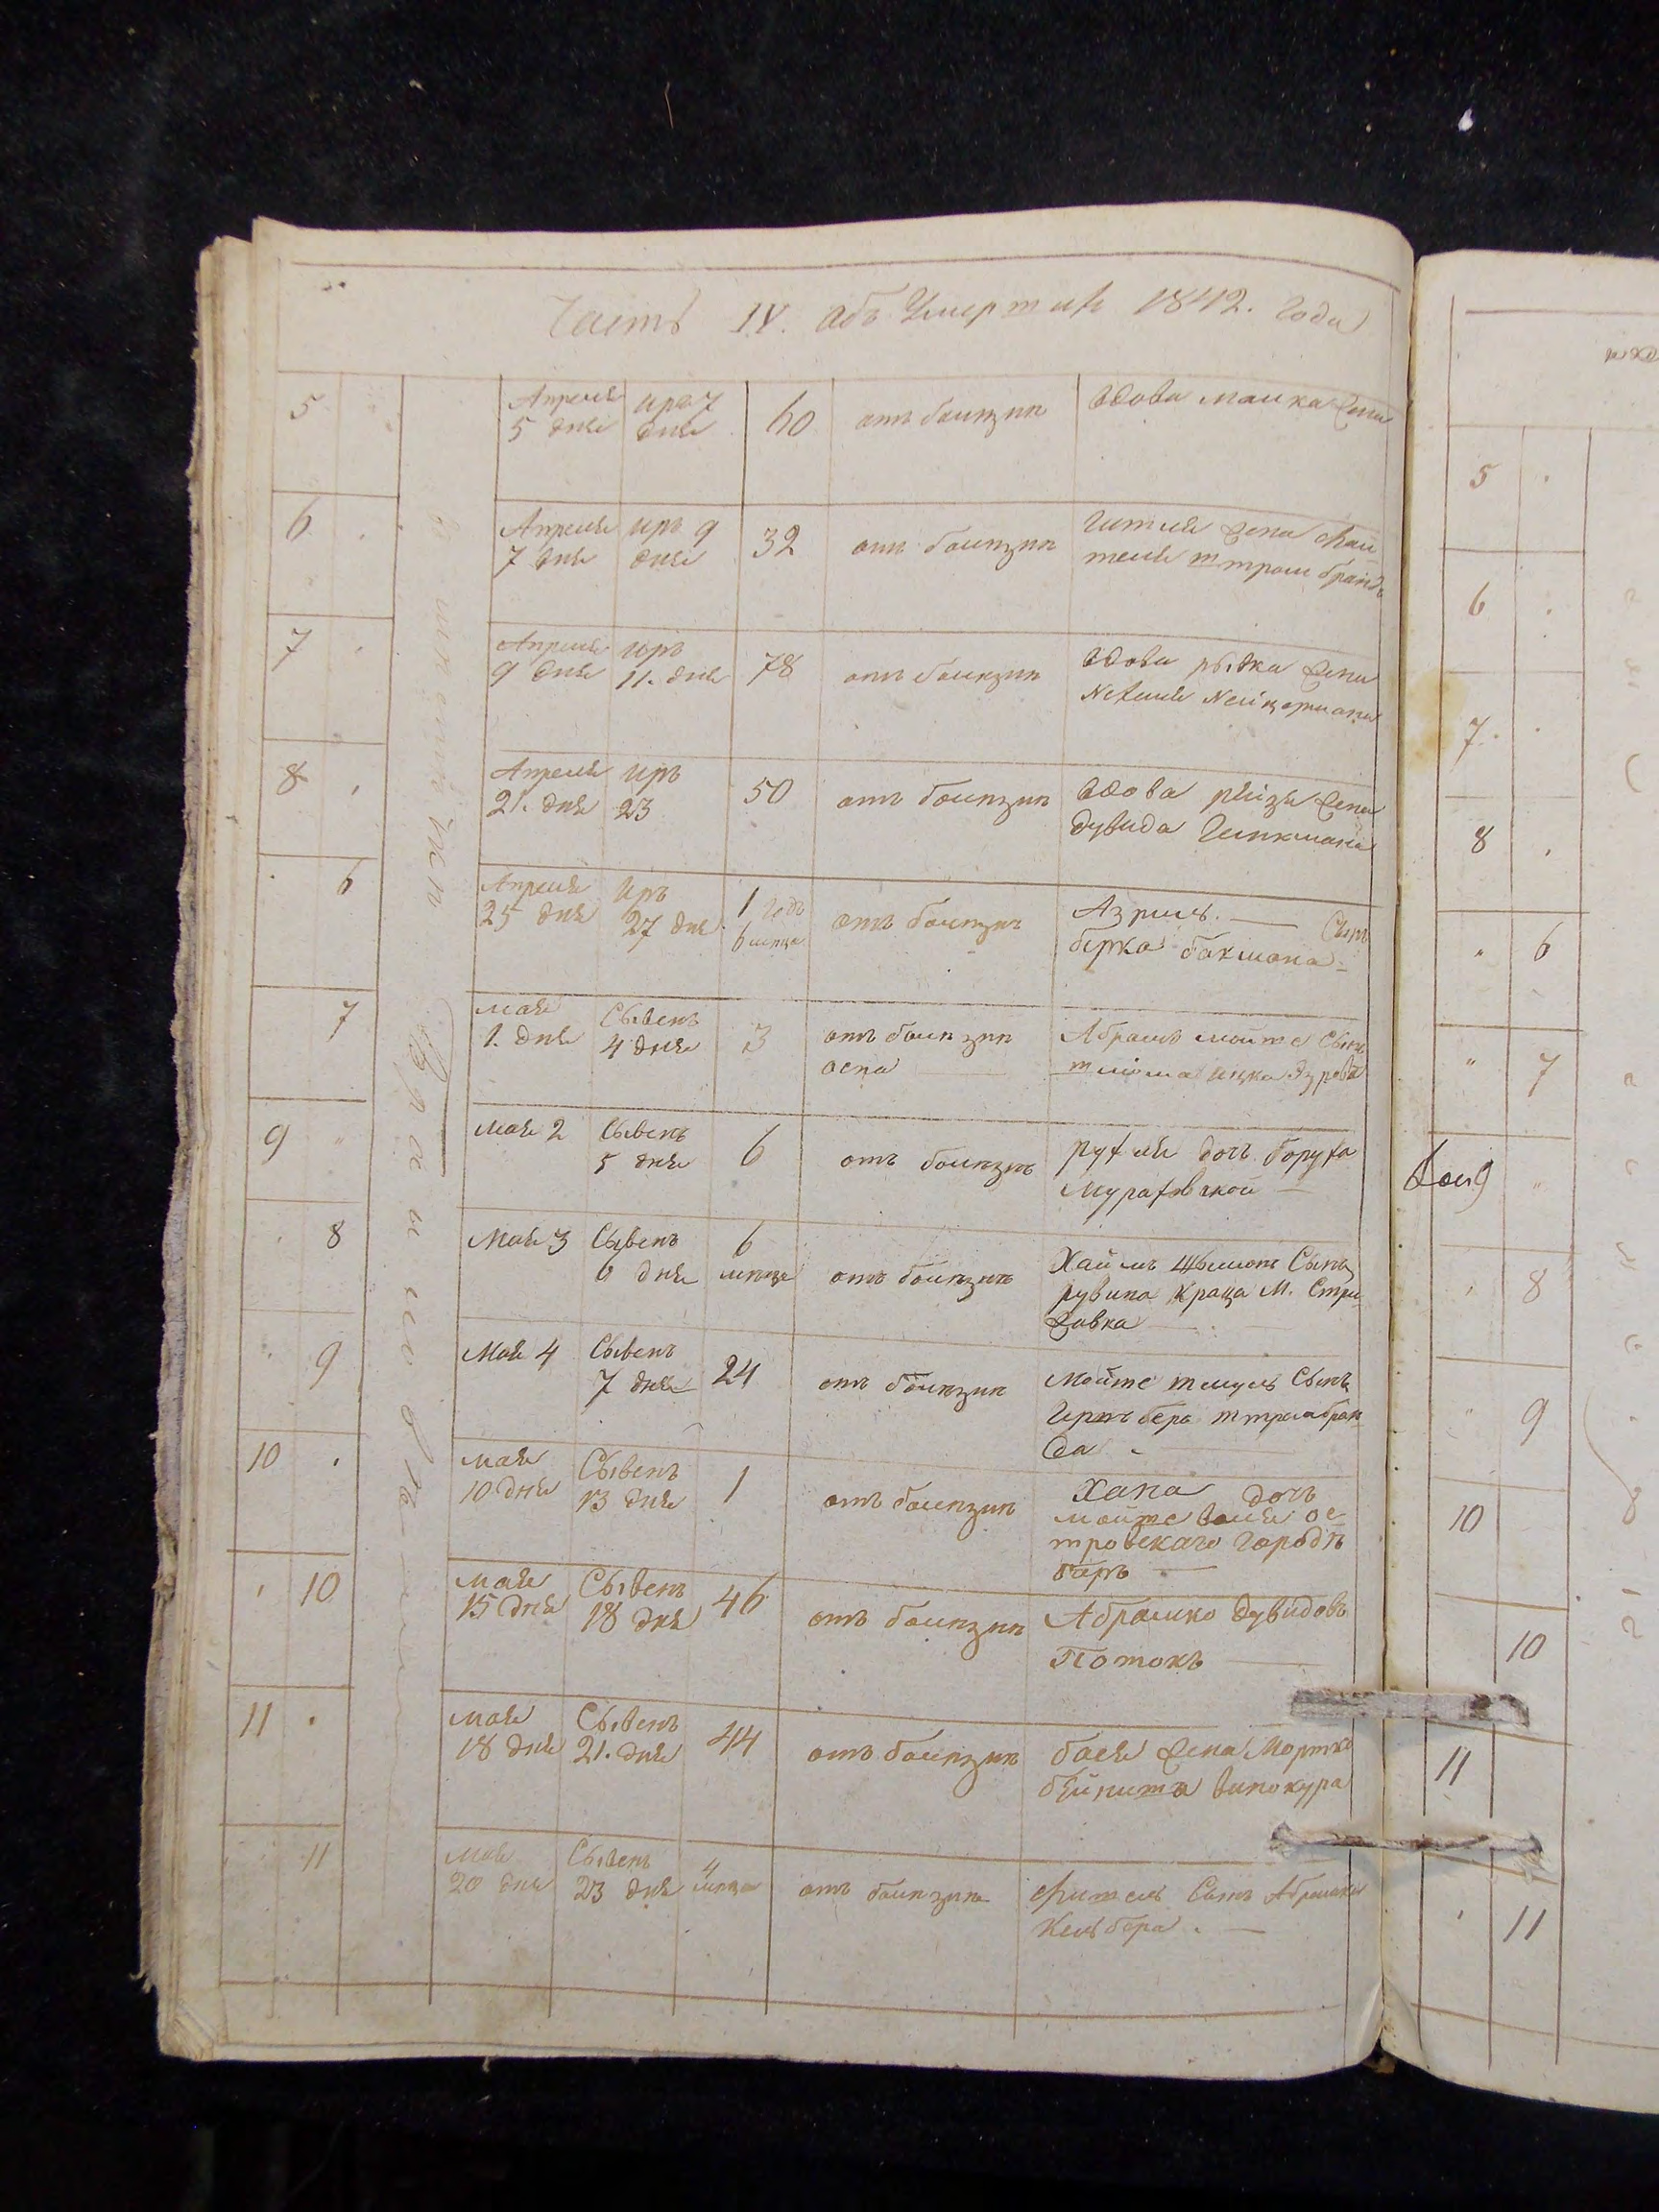 Часть IV. Абъ Умертih 1842. Года
5
Апреля
5 дня
иръ 7
дня
60
отъ болѣзни
вдова малка
6
Апреля
7 дня
иръ 9
дня
32
отъ болѣзни
Гитля жена
7
Апреля
9 дня
иръ
11. дня
78
отъ болѣзни
вдова рывка жена
8
Апреля
21. дня
иръ
23
50
отъ болѣзни
вдова рейзя жена
дувида
6
Апреля
25 дня
иръ
27 дня
1 годъ
6 мѣпца
отъ болѣзни
Азриль. Сынъ
берка бакмана
7
мая
1. дня
Сывенъ
4 дня
3
отъ болѣзни
аспа
Абрамъ мойше Сынъ
шлiома ицка
9
мая 2
Сывенъ
5 дня
6
отъ болѣзнъ
рухля дочъ боруха
Мурахвской
8
Мая 3
Сывенъ
6 дня
6
мѣпца
отъ болѣзнъ
Хаимъ Шымонъ Сынъ
рувина Краца М. Стри
жавка
9
Мая 4
Сывенъ
7 дня
24
отъ болѣзни
Мойше шмуль Сынъ
Гершъ бера штрамбран
да
10
мая
10 дня
Сывенъ
13 дня
1
отъ болѣзни
Хана дочъ
мойше воля ос
тровскаго городъ
баръ
10
мая
15 дня
Сывенъ
18 дня
46
отъ болѣзни
Абрамко дувидовъ
Потокъ
11
мая
18 дня
Сывенъ
21. дня
44
отъ болѣзни
бася жена Мортка
бейниша винокура
11
мая
20 дня
Сывенъ
23 дня
4
мѣпца
отъ болѣзни
фишель Сынъ Абрамка
Кельбера.
Враиловѣ
5
6
7
8
6
7
9
8
9
10
10
11
11